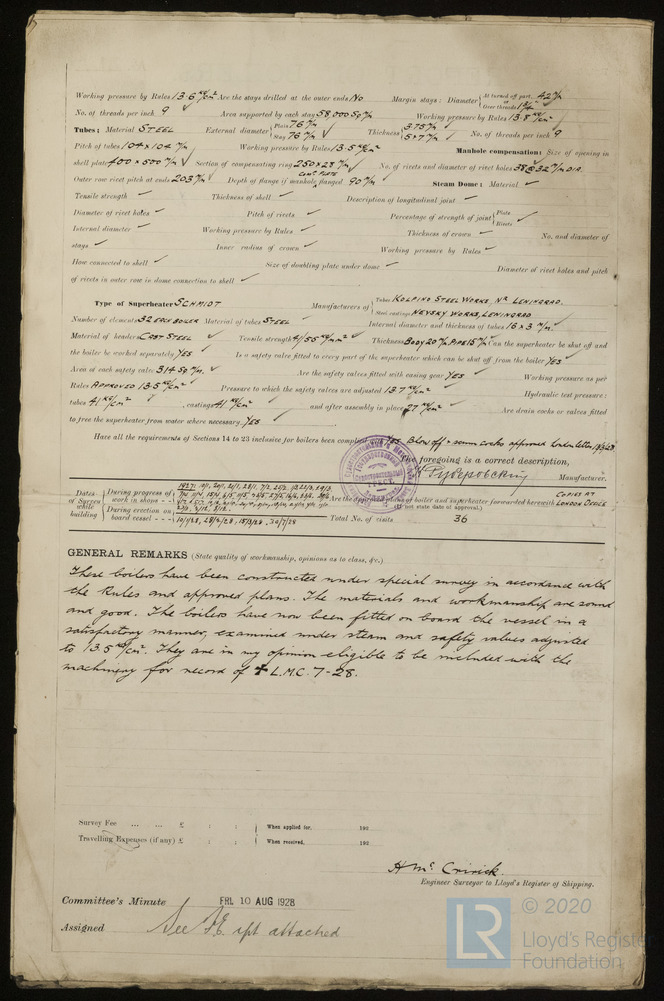 Working pressure by Rules 13.6 kg/cm² Are the stays drilled at the outer ends No Margin stays: Diameter { At turned off part, or Over threads 42 m/m 1¾"
No. of threads per inch 9 Area supported by each stay 58,000 Sq m/m Working pressure by Rules 13.8 kg/cm²
Tubes: Material STEEL External diameter { Plain 76 m/m Stay 76 m/m Thickness { 3.75 m/m 5 & 7 m/m No. of threads per inch 9
Pitch of tubes 104 x 104 m/m Working pressure by Rules 13.5 kg/cm² Manhole compensation: Size of opening in
shell plate 400 x 500 m/m Section of compensating ring 250 x 28 m/m No. of rivets and diameter of rivet holes 38 @ 32 m/m DIA.
Outer row rivet pitch at ends 203 m/m Depth of flange if manhole flanged COMP. PLATE 90 m/m Steam Dome: Material
Tensile strength Thickness of shell Description of longitudinal joint
Diameter of rivet holes Pitch of rivets Percentage of strength of joint { Plate Rivets
Internal diameter Working pressure by Rules Thickness of crown No. and diameter of
stays Inner radius of crown Working pressure by Rules
How connected to shell Size of doubling plate under dome Diameter of rivet holes and pitch
of rivets in outer row in dome connection to shell
Type of Superheater SCHMIDT Manufacturers of { Tubes KOLPINO STEEL WORKS, NR LENINGRAD. Steel castings NEVSKY WORKS, LENINGRAD
Number of elements 32 EACH BOILER Material of tubes STEEL Internal diameter and thickness of tubes 16 x 3 m/m.
Material of headers CAST STEEL Tensile strength 41/55 kg/mm² Thickness BODY 20 m/m PIPE 15 m/m Can the superheater be shut off and
the boiler be worked separately YES Is a safety valve fitted to every part of the superheater which can be shut off from the boiler YES
Area of each safety valve 314 Sq m/m. Are the safety valves fitted with easing gear YES Working pressure as per
Rules APPROVED 13.5 kg/cm² Pressure to which the safety valves are adjusted 13.7 kg/cm² Hydraulic test pressure:
tubes 41 kg/cm², castings 41 kg/cm² and after assembly in place 27 kg/cm² Are drain cocks or valves fitted
to free the superheater from water where necessary YES
Have all the requirements of Sections 14 to 23 inclusive for boilers been complied with YES Blow off & scum cocks approved London letter
The foregoing is a correct description,
Manufacturer.
Dates of Survey while building { During progress of work in shops - - 1927:
During erection on board vessel - - - 10/1/28, 28/2/28, 15/3/28, 30/7/28
Are the approved plans of boiler and superheater forwarded herewith COPIES AT LONDON OFFICE
(If not state date of approval.)
Total No. of visits 36
GENERAL REMARKS (State quality of workmanship, opinions as to class, &c.)
These boilers have been constructed under special survey in accordance with
the Rules and approved plans. The materials and workmanship are sound
and good. The boilers have now been fitted on board the vessel in a
satisfactory manner, examined under steam and safety valves adjusted
to 13.5 kg/cm². They are in my opinion eligible to be included with the
machinery for record of ✠ L.M.C. 7-28.
Survey Fee ... ... £ : : When applied for, 192
Travelling Expenses (if any) £ : : When received, 192
H Mc Cririck
Engineer Surveyor to Lloyd's Register of Shipping.
Committee's Minute FRI. 10 AUG 1928
Assigned See F.E. rpt attached
LR © 2020
Lloyd's Register
Foundation